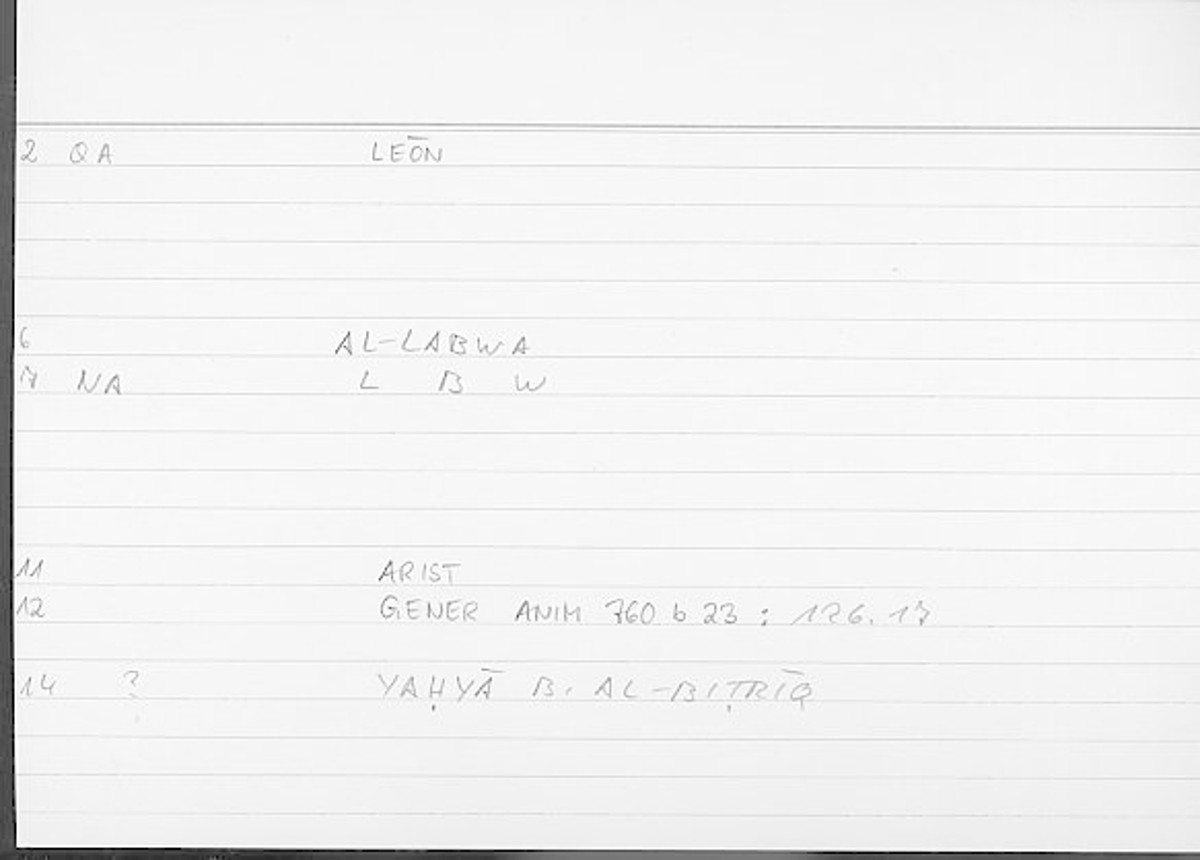 2 QA LEŌN
6 AL-LABWA
7 NA L B W
11 ARIST
12 GENER ANIM 760 b 23 : 126.17
14 ? YAḤYĀ B. AL-BIṬRĪQ